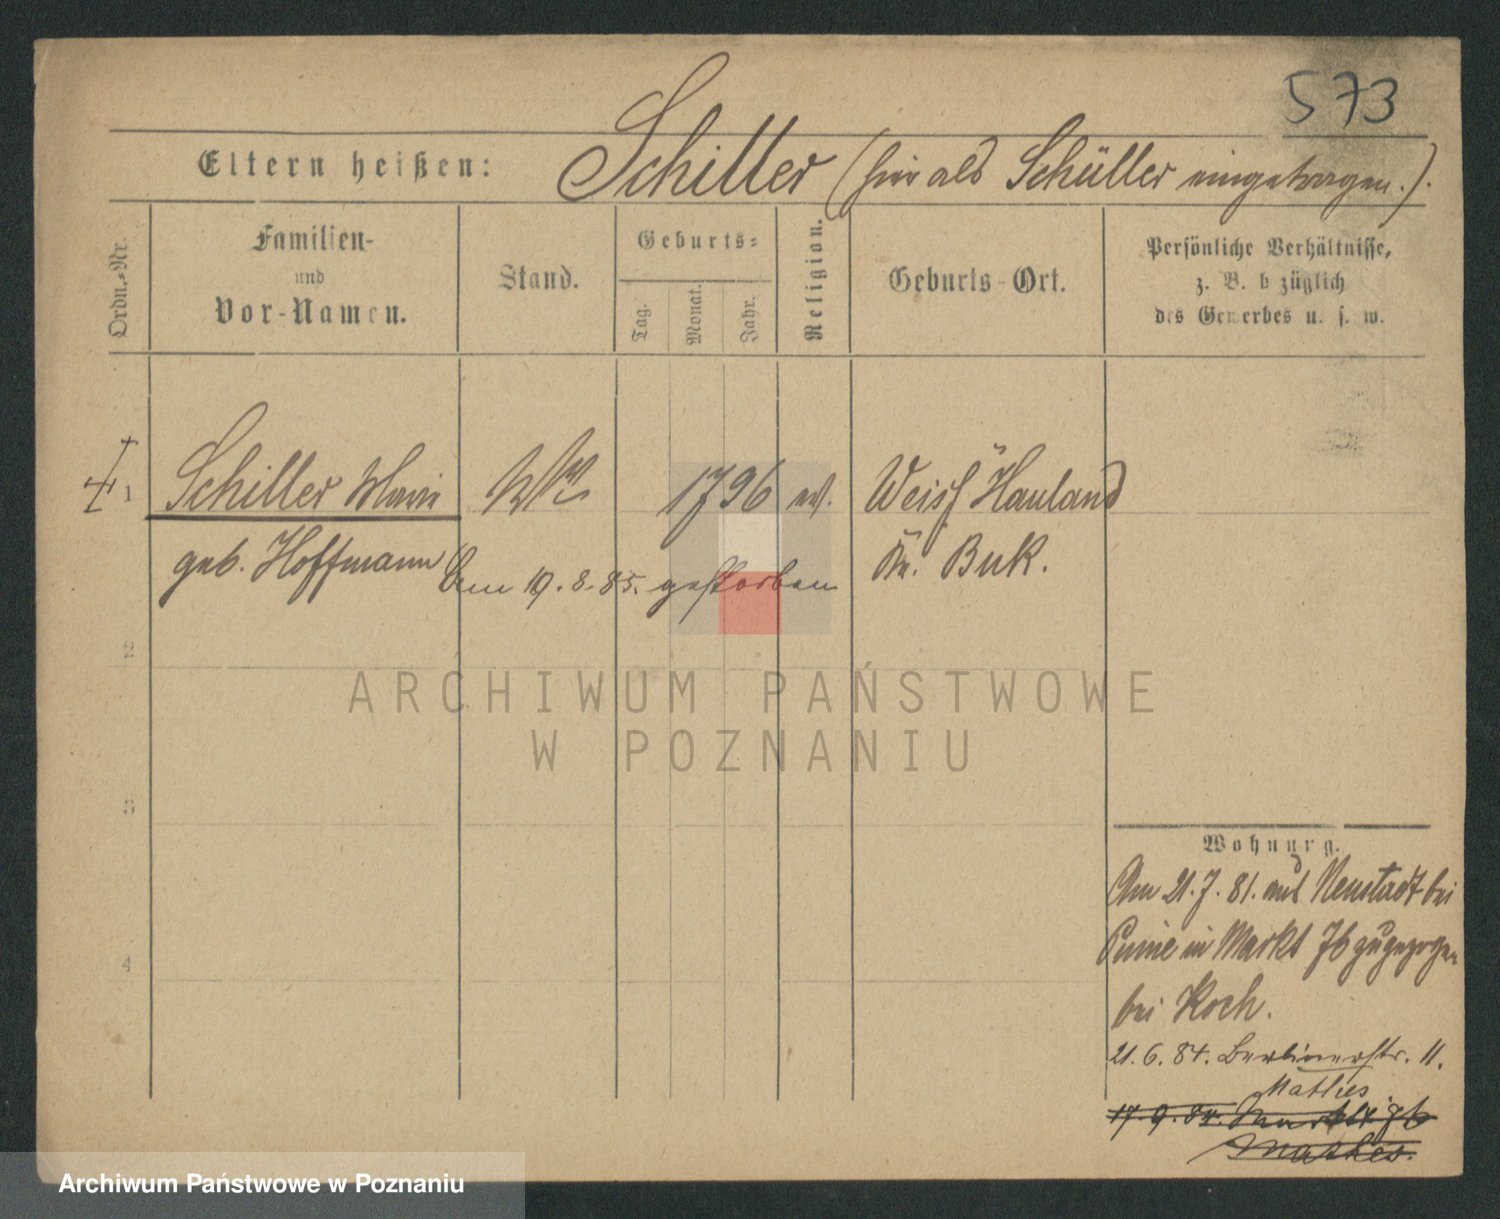 573
Eltern heißen: Schiller (hier als Schüller eingetragen.).
Ordn.-Nr.
Familien-
und
Vor-Namen.
Stand.
Geburts-
Tag.
Monat.
Jahr.
Religion.
Geburts-Ort.
Persönliche Verhältnisse,
z. B. b züglich
des Gewerbes u. s. w.
1 Schiller Marie 1796 ev. Weiss Hauland
geb. Hoffmann Am 19. 8. 85. gestorben Kr. Buk.
2
3
4
Wohnung.
Am 21. 7. 81. aus Neustadt bei
Pinne in Markt 76 zugezogen
bei Koch.
21. 6. 84. Berlinerstr. 11.
Mathes
17. 9. 84. Markt 76
Mathes.
ARCHIWUM PAŃSTWOWE
W POZNANIU
Archiwum Państwowe w Poznaniu